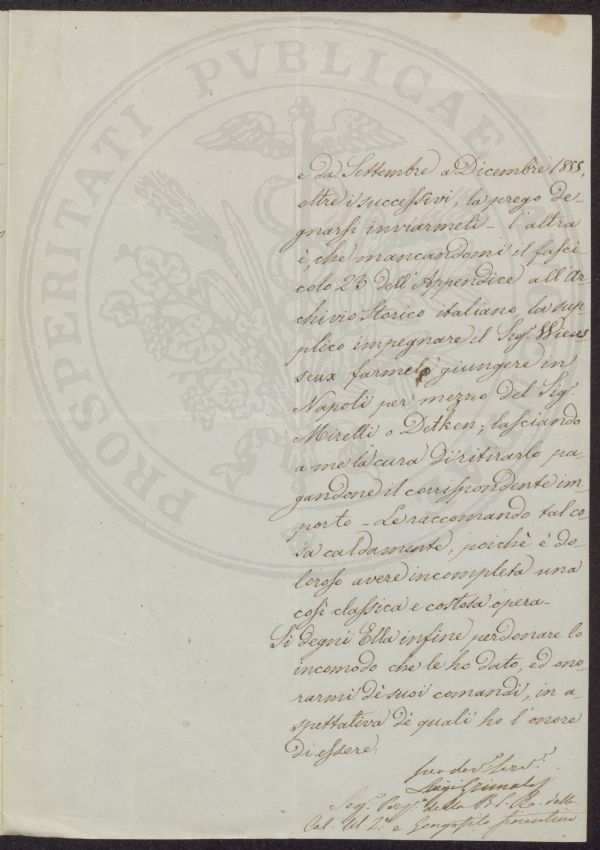 PROSPERITATI PVBLICAE
e da Settembre a Dicembre 1855,
oltre i successivi, la prego de-
gnarsi inviarmeli - l'altra
è, che mancandomi il fasci-
colo 23 dell'Appendice all'Ar-
chivio Storico italiano, la sup-
plico impegnare il Sigr. Vieus
seux farmelo giungere in
Napoli per mezzo del Sigr.
Mirelli o Detken; lasciando
a me la cura di ritirarlo pa-
gandone il corrispondente im-
porto - Le raccomando tal co-
sa caldamente, poichè è do-
loroso avere incompleta una
così classica e costosa opera -
Si degni Ella infine perdonare lo
incomodo che le ho dato, ed ono-
rarmi dè suoi comandi, in a-
spettativa dè quali ho l'onore
di essere.
Suo dev. serv.
Luigi Grimaldi
della
e Georgofili fiorentini